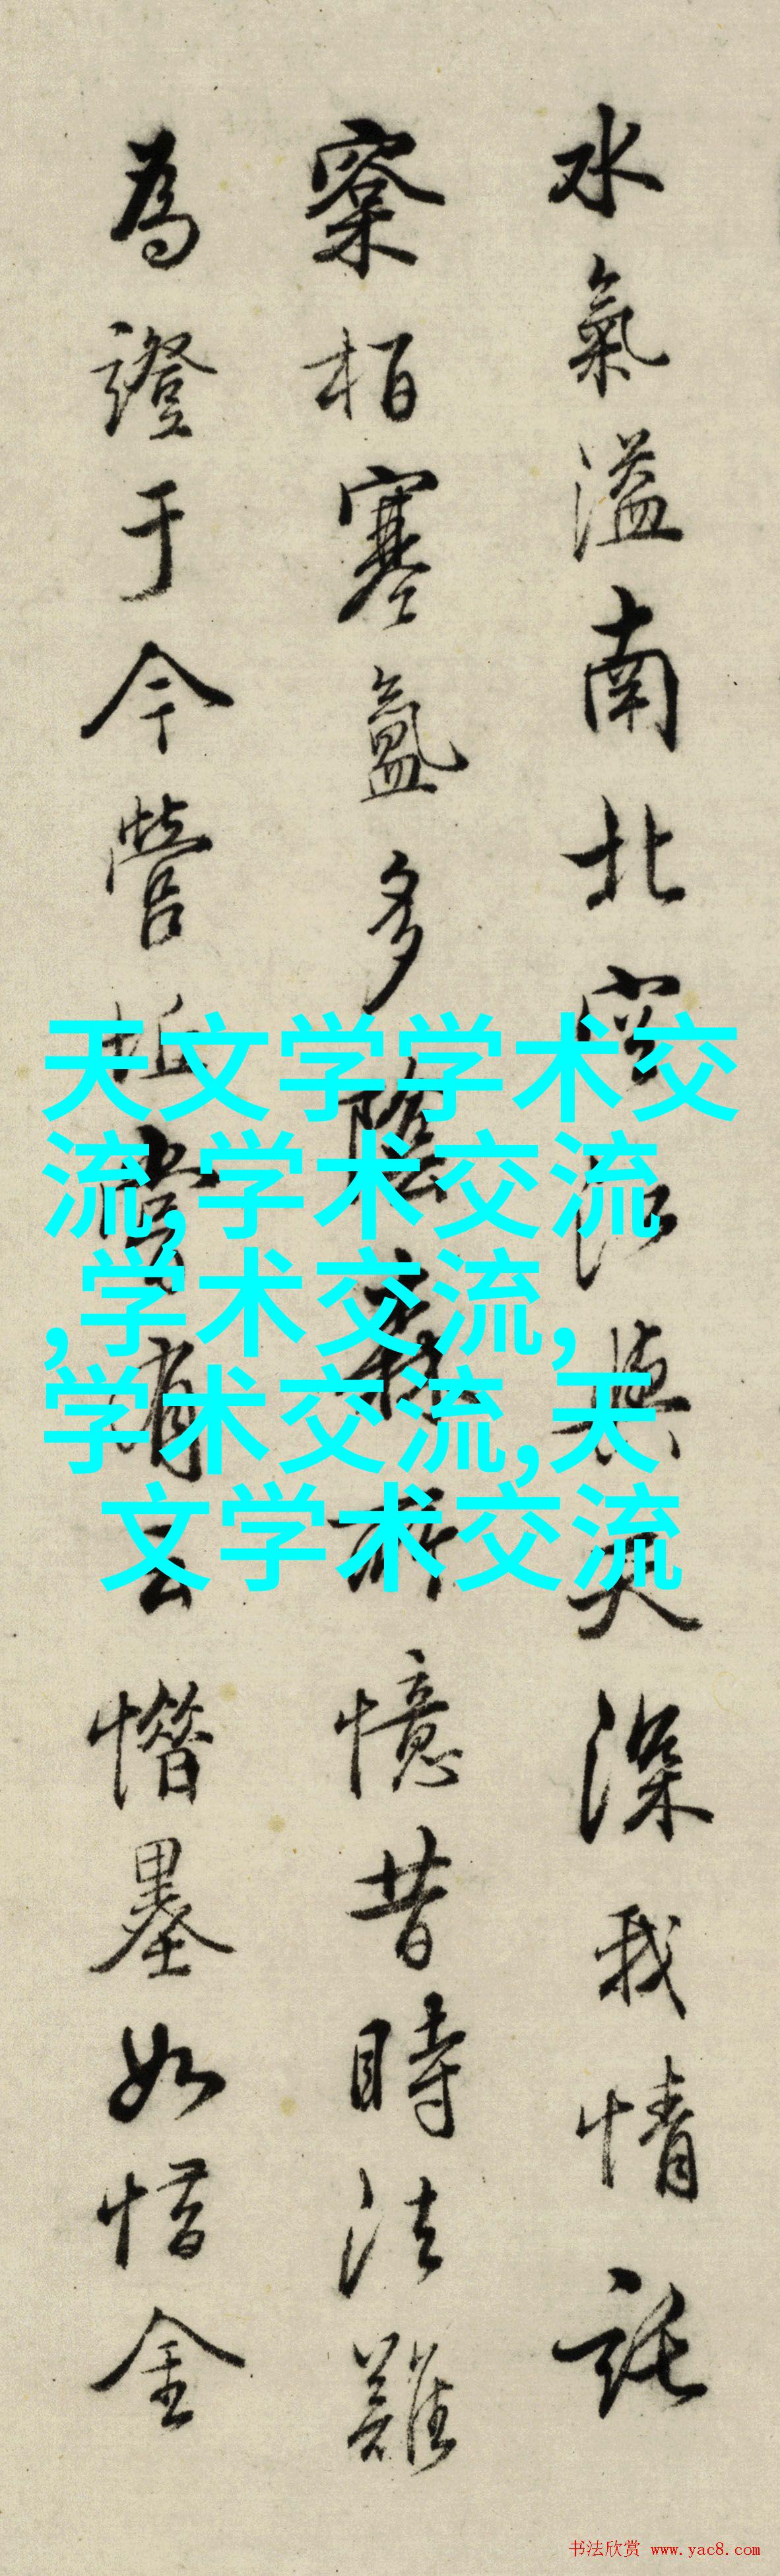 水氣溢南北
深我情託
寀栢寒氳多陰森所憶昔時法難
為證于今營
有云惜墨如惜金
天文学学术交
流,学术交流
,学术交流,
学术交流,天
文学术交流
书法欣赏 www.yac8.com